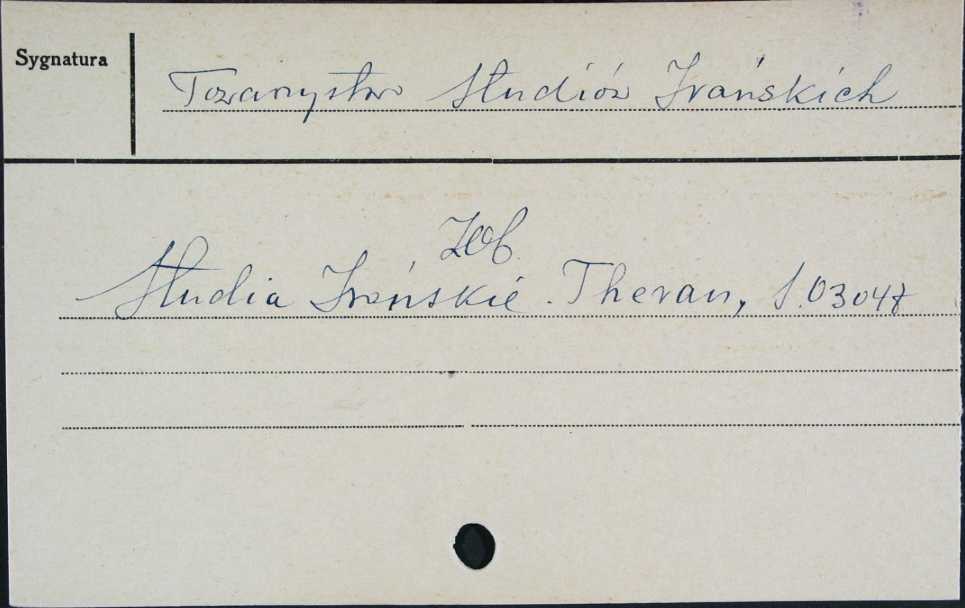 Sygnatura
Towarzystwo Studiów Irańskich
Zob.
Studia Irańskie. Theran, S.03047